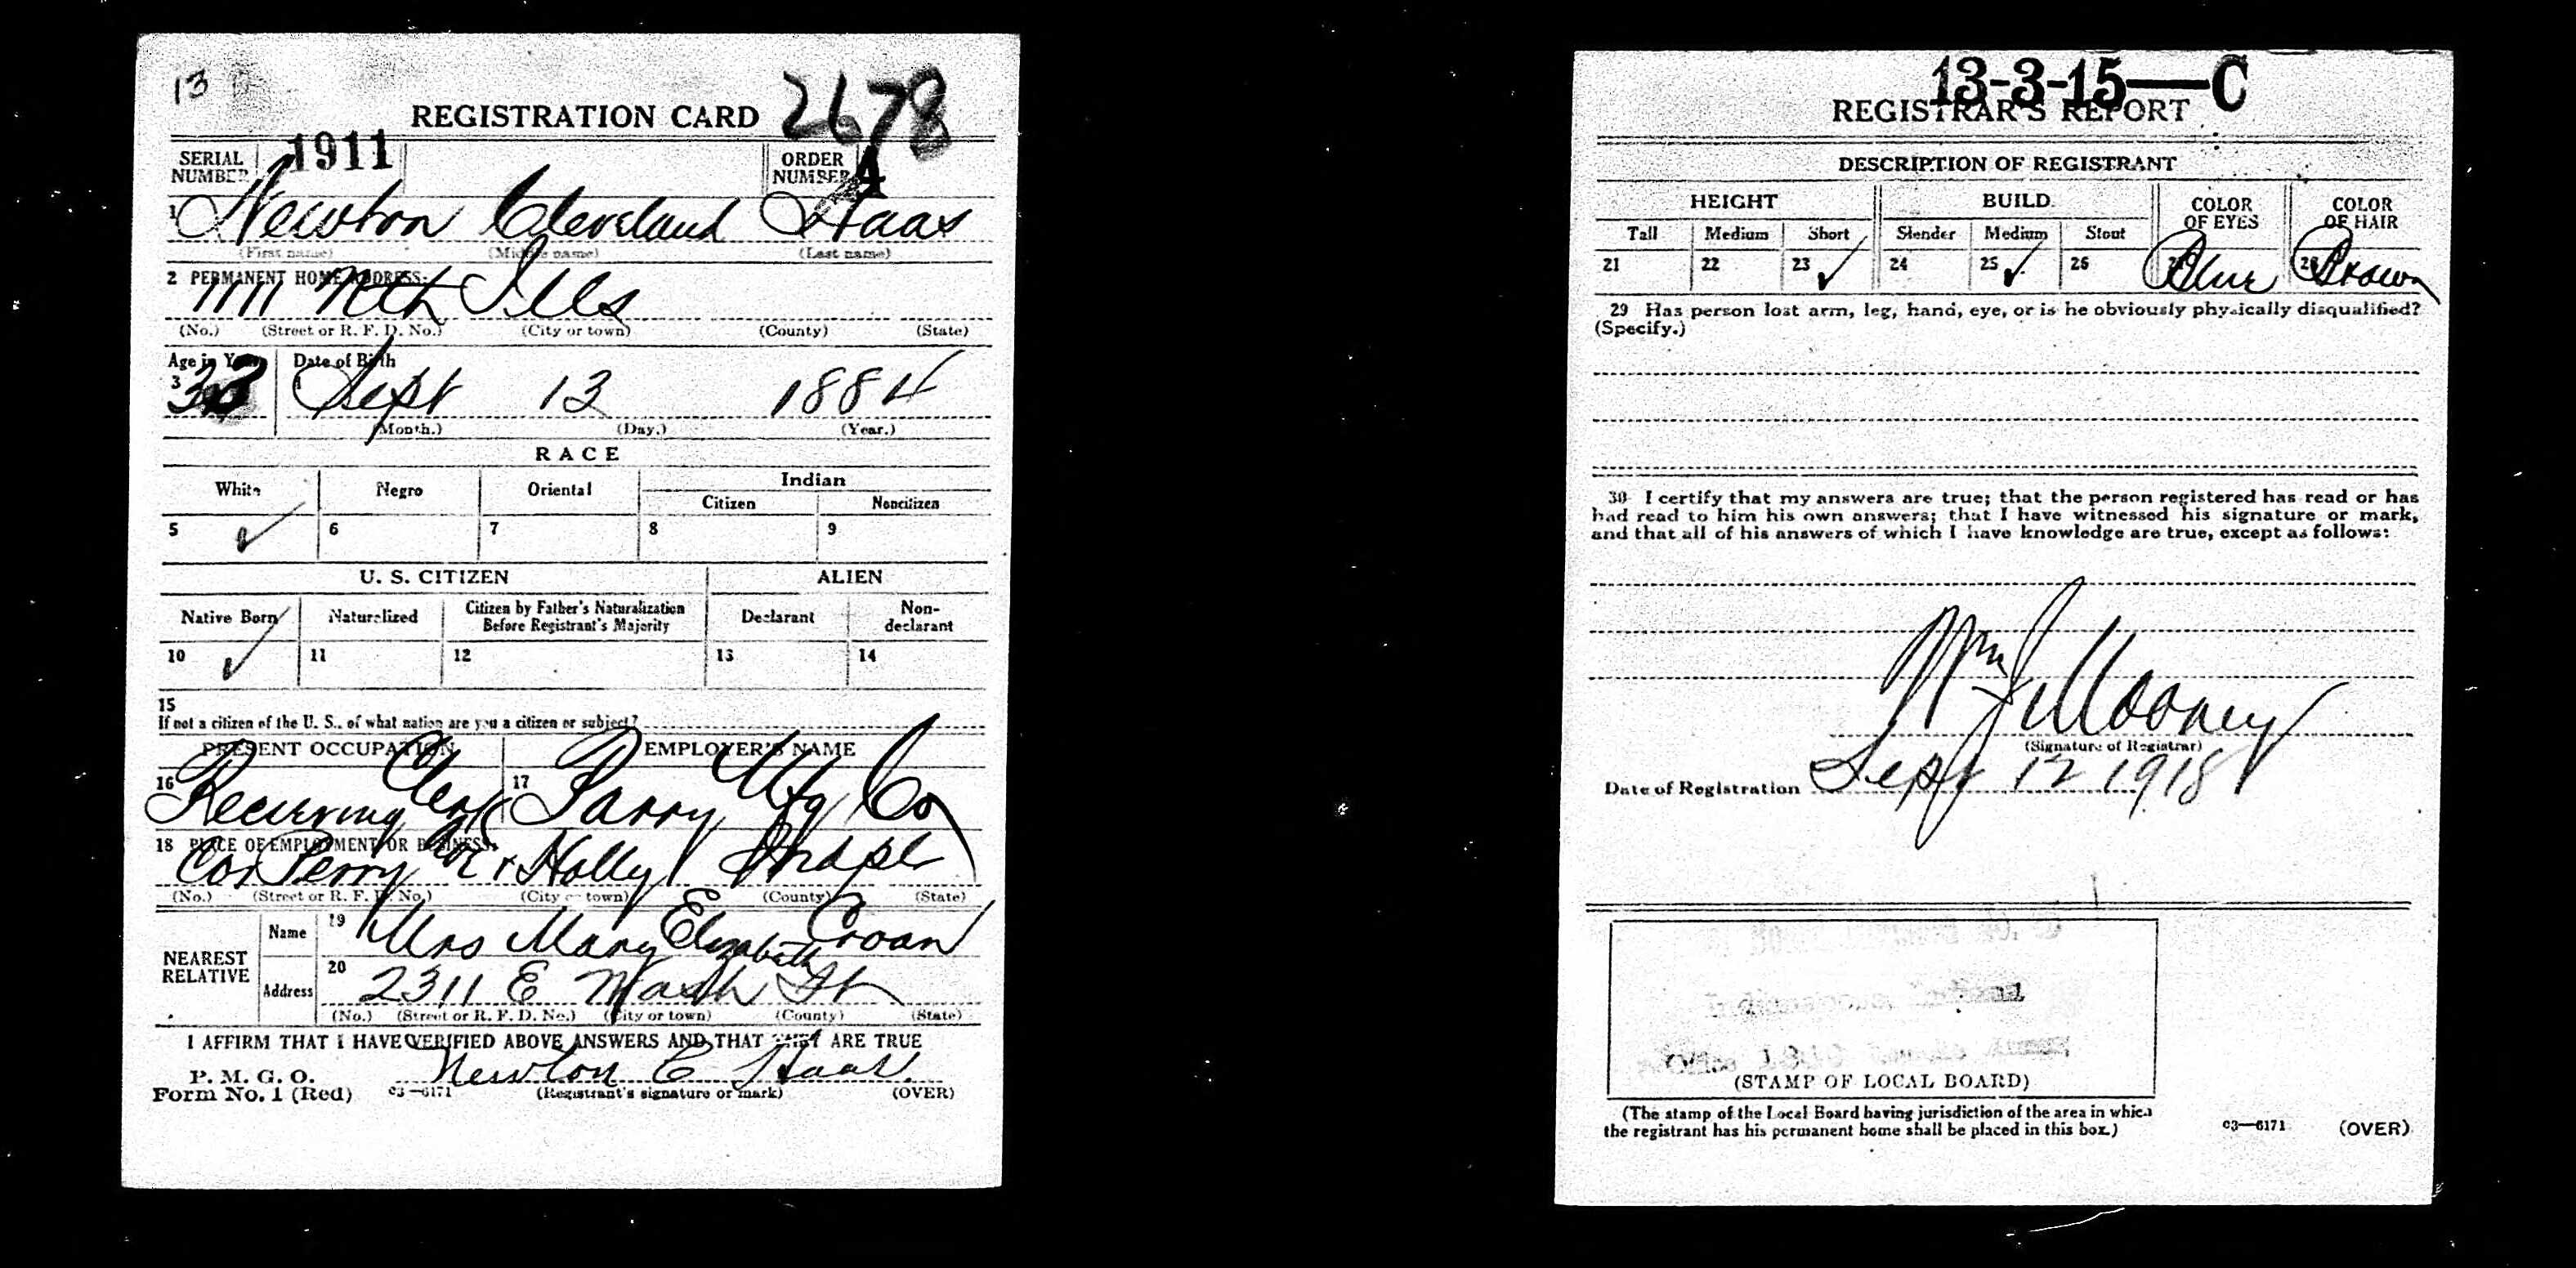 13
REGISTRATION CARD 2678
SERIAL NUMBER 1911 ORDER NUMBER A
1 Newton Cleveland Haas
(First name) (Middle name) (Last name)
2 PERMANENT HOME ADDRESS:
1111 Nth Ills
(No.) (Street or R. F. D. No.) (City or town) (County) (State)
Age in Years Date of Birth
3 33 Sept 13 1884
(Month.) (Day.) (Year.)
RACE
White Negro Oriental Indian
Citizen Noncitizen
5 ✓ 6 7 8 9
U. S. CITIZEN ALIEN
Native Born Naturalized Citizen by Father's Naturalization Before Registrant's Majority Declarant Non-declarant
10 ✓ 11 12 13 14
15
If not a citizen of the U. S., of what nation are you a citizen or subject?
PRESENT OCCUPATION EMPLOYER'S NAME
16 Receiving Clerk 17 Parry Mfg Co
18 PLACE OF EMPLOYMENT OR BUSINESS:
Cor Perry & Holly Indpls
(No.) (Street or R. F. D. No.) (City or town) (County) (State)
NEAREST RELATIVE
Name 19 Mrs Mary Elizabeth Croan
Address 20 2311 E Wash St
(No.) (Street or R. F. D. No.) (City or town) (County) (State)
I AFFIRM THAT I HAVE VERIFIED ABOVE ANSWERS AND THAT THEY ARE TRUE
P. M. G. O.
Form No. 1 (Red) c3—6171 Newton C Haas
(Registrant's signature or mark) (OVER)
13-3-15—C
REGISTRAR'S REPORT
DESCRIPTION OF REGISTRANT
HEIGHT BUILD COLOR OF EYES COLOR OF HAIR
Tall Medium Short Slender Medium Stout
21 22 23 ✓ 24 25 ✓ 26 27 Blue 28 Brown
29 Has person lost arm, leg, hand, eye, or is he obviously physically disqualified?
(Specify.)
30 I certify that my answers are true; that the person registered has read or has
had read to him his own answers; that I have witnessed his signature or mark,
and that all of his answers of which I have knowledge are true, except as follows:
Wm J Mooney
(Signature of Registrar)
Date of Registration Sept 12 1918
(STAMP OF LOCAL BOARD)
(The stamp of the Local Board having jurisdiction of the area in which
the registrant has his permanent home shall be placed in this box.)
c3—6171 (OVER)